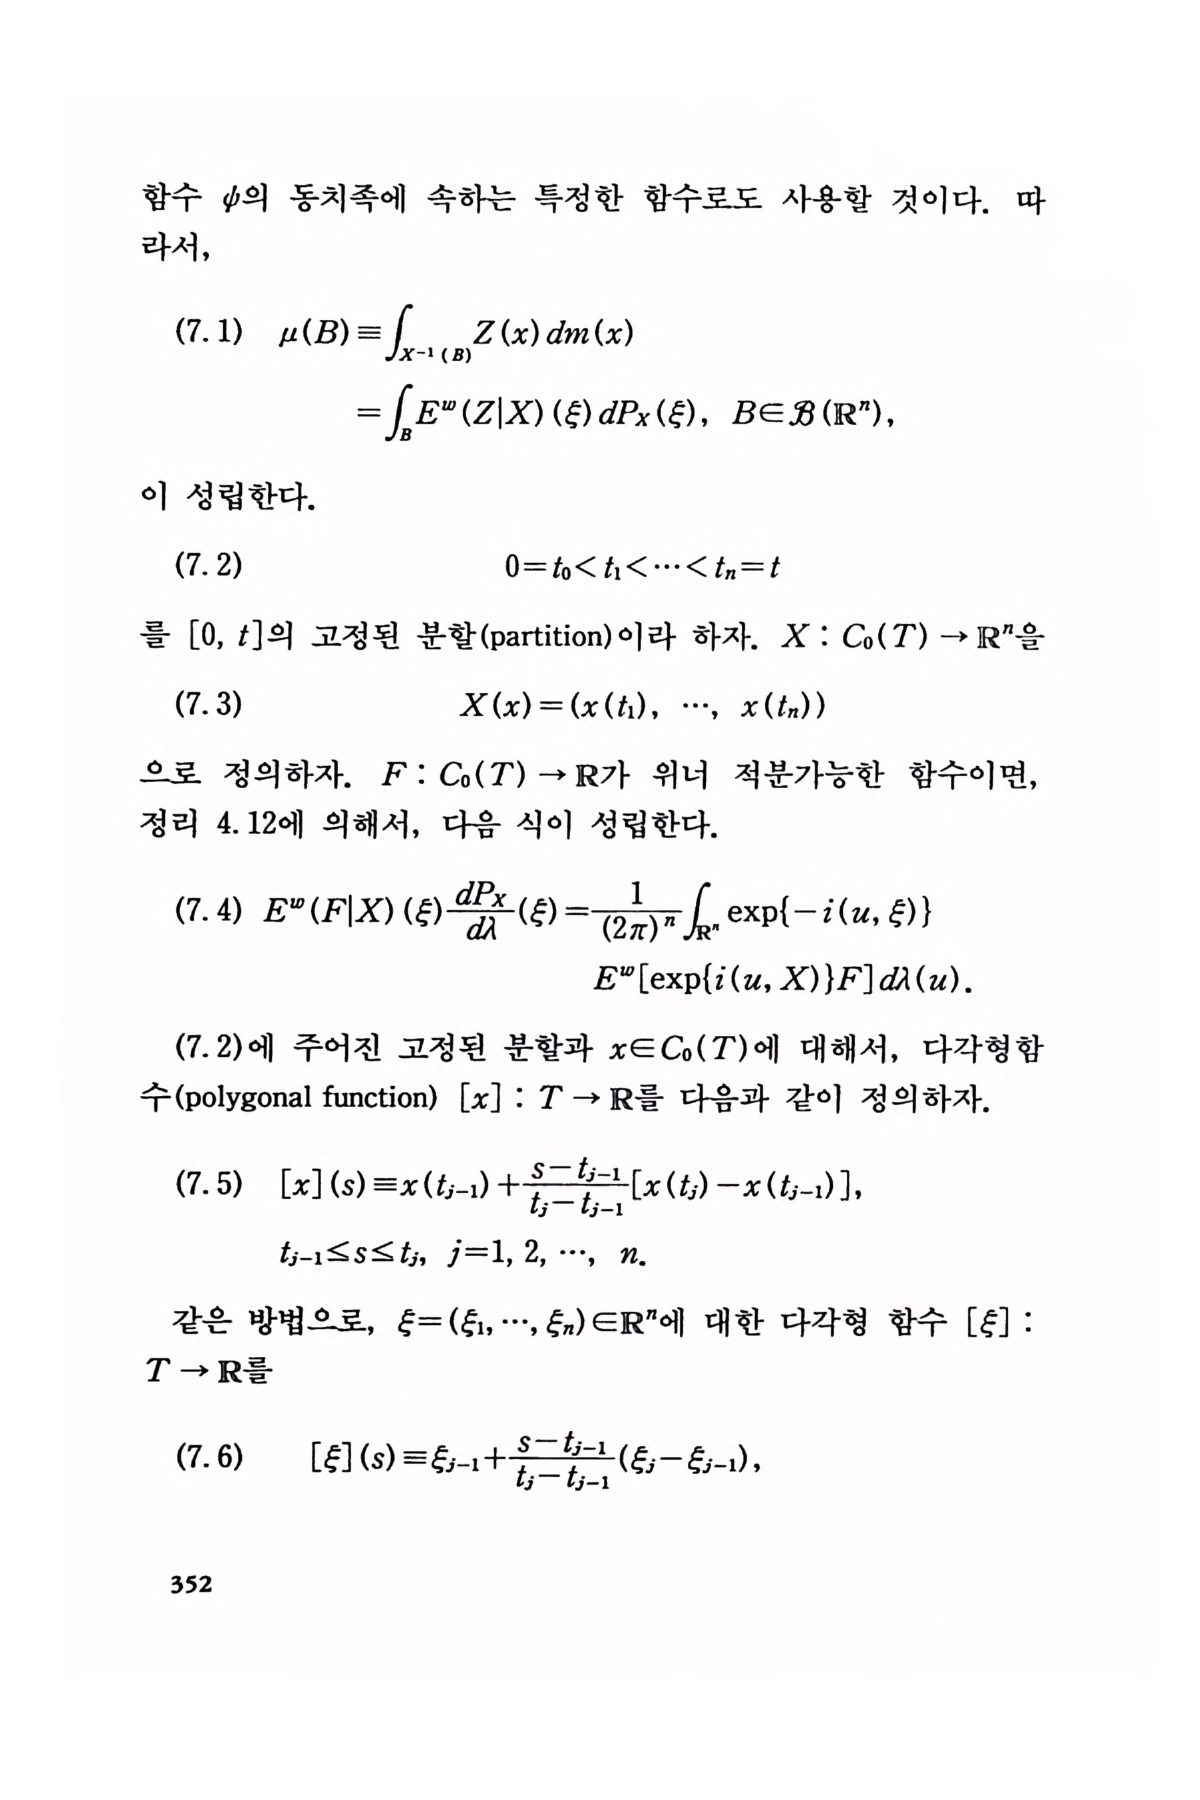 함수 ψ의 동치족에 속하는 특정한 함수로도 사용할 것이다. 따
라서,
(7.1) μ(B)≡∫_{X⁻¹(B)} Z(x)dm(x)
=∫_B E^w(Z|X)(ξ)dP_X(ξ), B∈𝓑(ℝⁿ),
이 성립한다.
(7.2) 0=t₀<t₁<⋯<tₙ=t
를 [0, t]의 고정된 분할(partition)이라 하자. X : C₀(T)→ℝⁿ을
(7.3) X(x)=(x(t₁), ⋯, x(tₙ))
으로 정의하자. F : C₀(T)→ℝ가 위너 적분가능한 함수이면,
정리 4.12에 의해서, 다음 식이 성립한다.
(7.4) E^w(F|X)(ξ)\frac{dP_X}{dλ}(ξ)=\frac{1}{(2π)^n}∫_{ℝⁿ} exp{−i(u, ξ)}
E^w[exp{i(u, X)}F]dλ(u).
(7.2)에 주어진 고정된 분할과 x∈C₀(T)에 대해서, 다각형함
수(polygonal function) [x] : T→ℝ를 다음과 같이 정의하자.
(7.5) [x](s)≡x(t_{j−1})+\frac{s−t_{j−1}}{t_j−t_{j−1}}[x(t_j)−x(t_{j−1})],
t_{j−1}≤s≤t_j, j=1, 2, ⋯, n.
같은 방법으로, ξ=(ξ₁, ⋯, ξₙ)∈ℝⁿ에 대한 다각형 함수 [ξ] :
T→ℝ를
(7.6) [ξ](s)≡ξ_{j−1}+\frac{s−t_{j−1}}{t_j−t_{j−1}}(ξ_j−ξ_{j−1}),
352